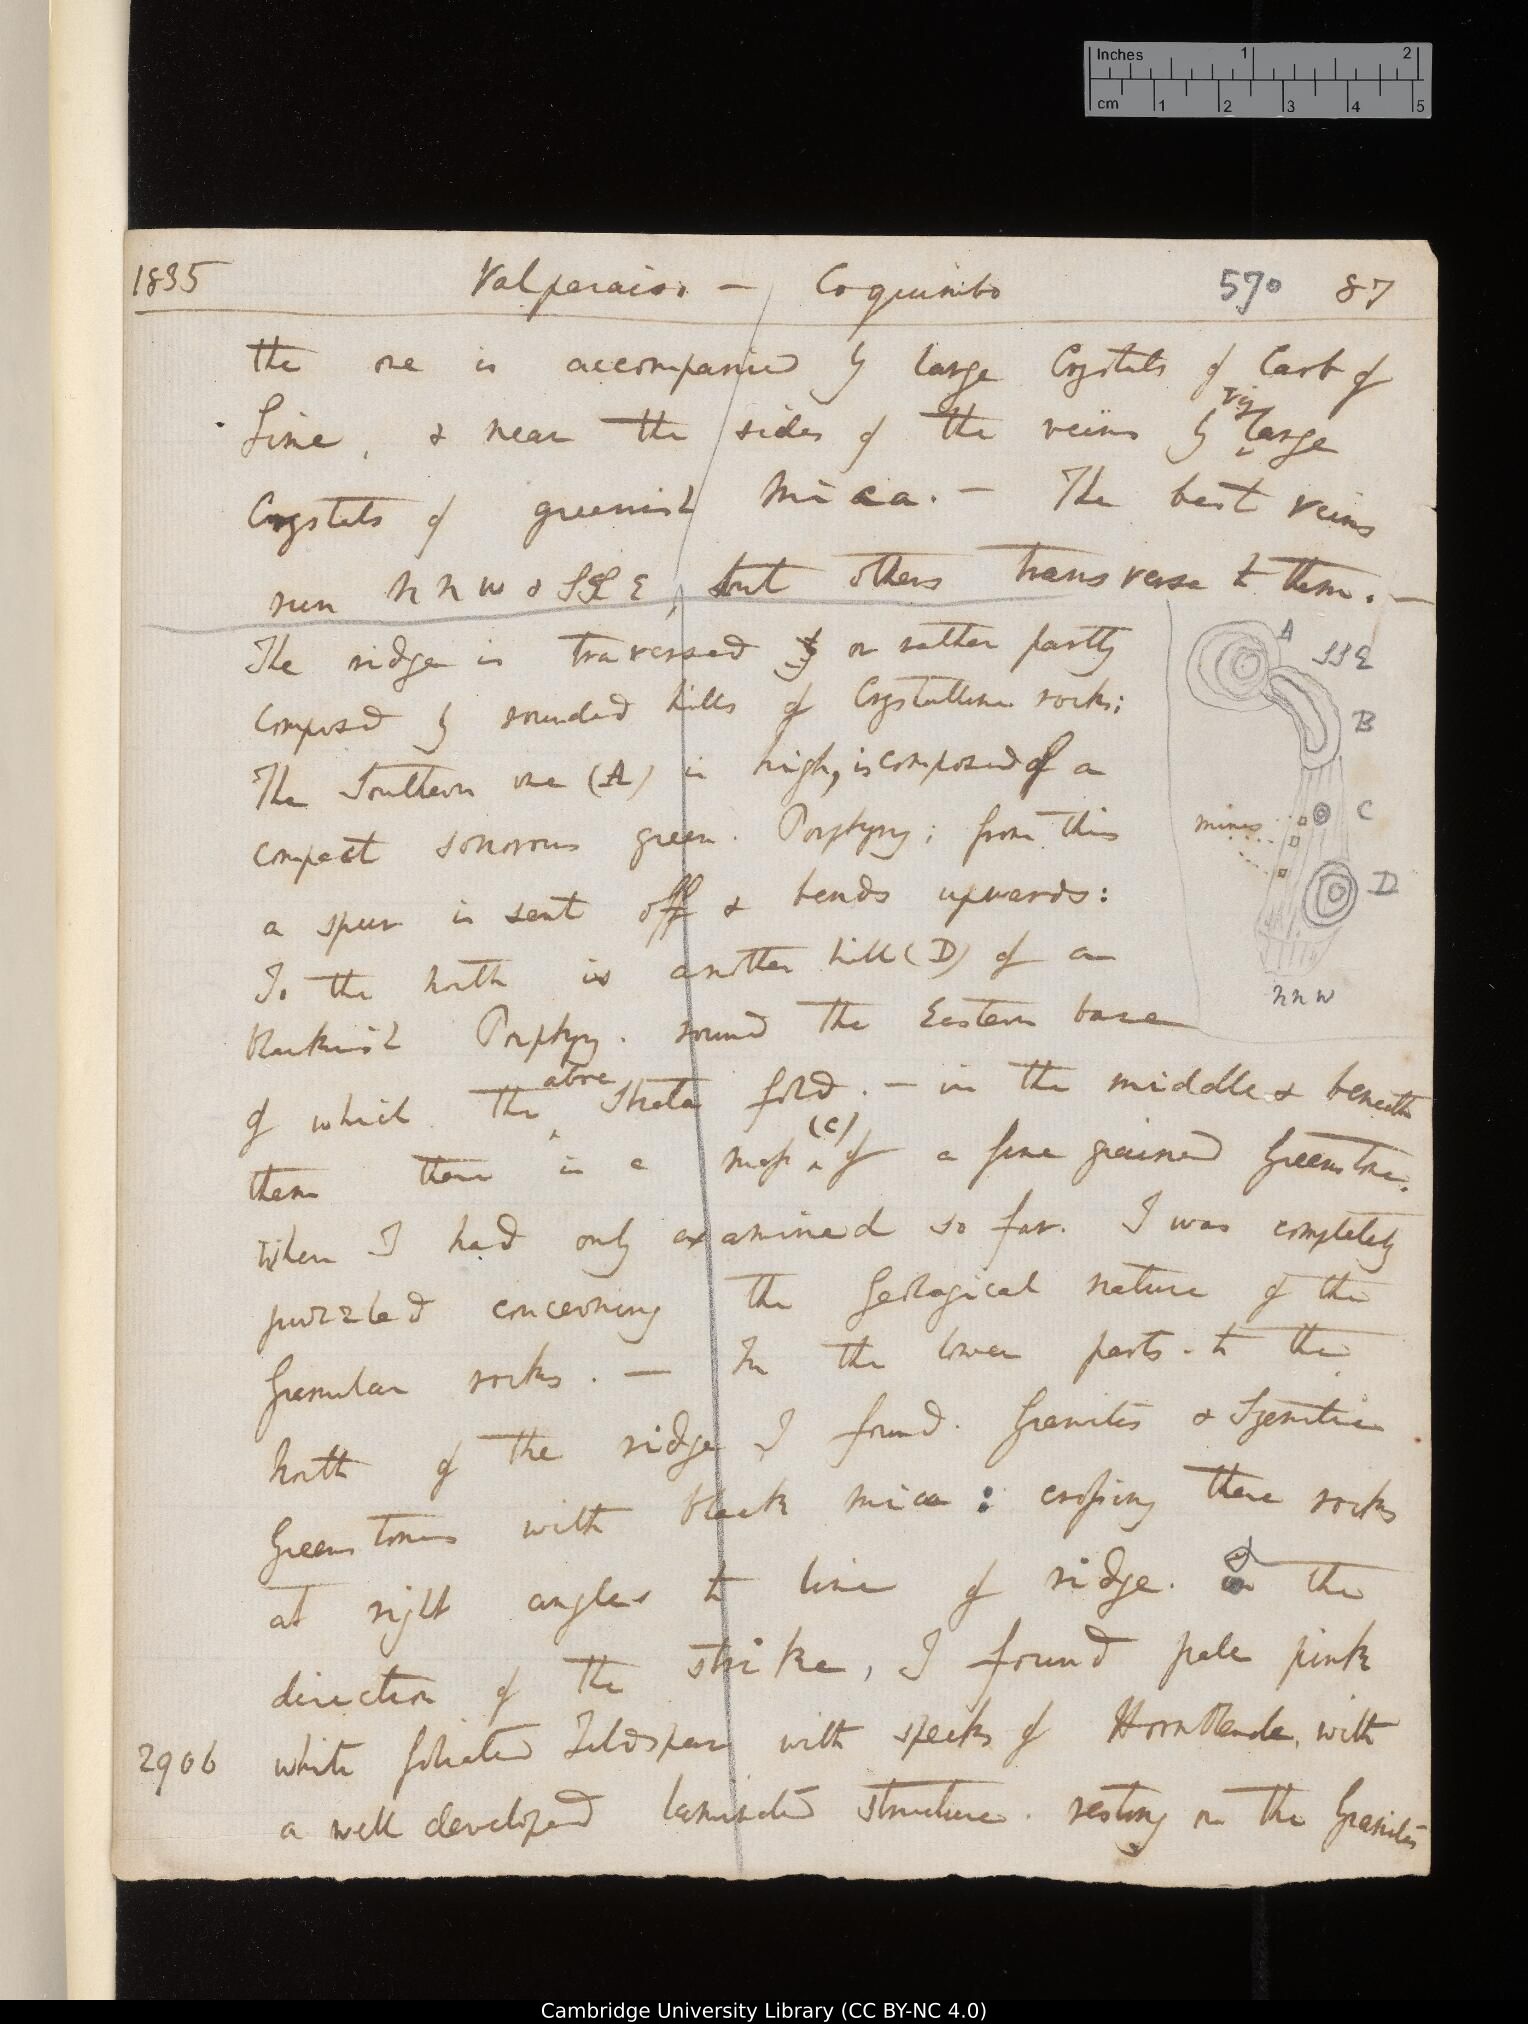 Inches 1 2
cm 1 2 3 4 5
1835 Valparaiso — Coquimbo 570 87
the ore is accompanied by large Crystals of Carb of
Lime, & near the sides of the veins by large
Crystals of greenish Mica. — The best veins
run NNW & SSE, but others transverse to them. —
The ridge is traversed by or rather partly
composed by rounded hills of Crystalline rocks;
The Southern one (A) is high, is composed of a
compact sonorous green. Porphyry; from this
a spur is sent off & bends upwards:
To the North is another hill (D) of a
blackish Porphyry. round the Eastern base
of which the above Strata fold. — in the middle & beneath
them there is a mass (C) of a fine grained Greenstone.
When I had only examined so far. I was completely
puzzled concerning the Geological nature of the
Granular rocks. — In the lower parts to the
North of the ridge I found. Granites & Syenitic
Greenstones with black mica: crossing these rocks
at right angles to line of ridge. in the
direction of the strike, I found pale pink
2906 white foliated Feldspar with specks of Hornblende, with
a well developed laminated structure. resting on the Granites
A
SSE
B
mines
C
D
NNW
Cambridge University Library (CC BY-NC 4.0)